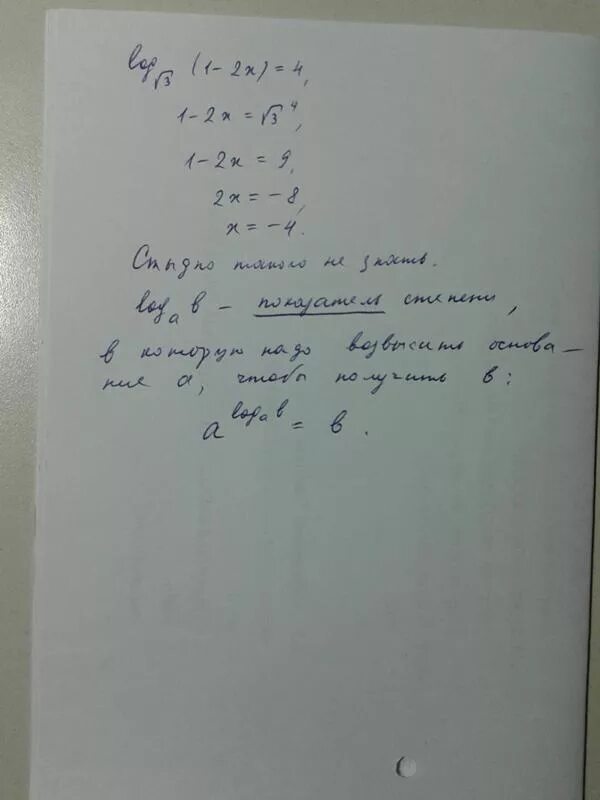 log√3 (1-2x) = 4,
1-2x = √3⁴,
1-2x = 9,
2x = -8,
x = -4.
Стыдно такого не знать.
logₐ b – показатель степени,
в которую надо возвысить основа-
ние a, чтобы получить b:
a^logₐ b = b.